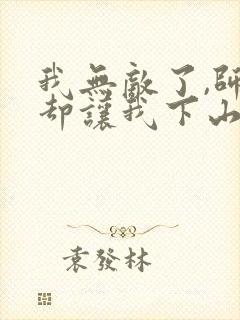 我無敵了,師
却讓我下山
袁發林